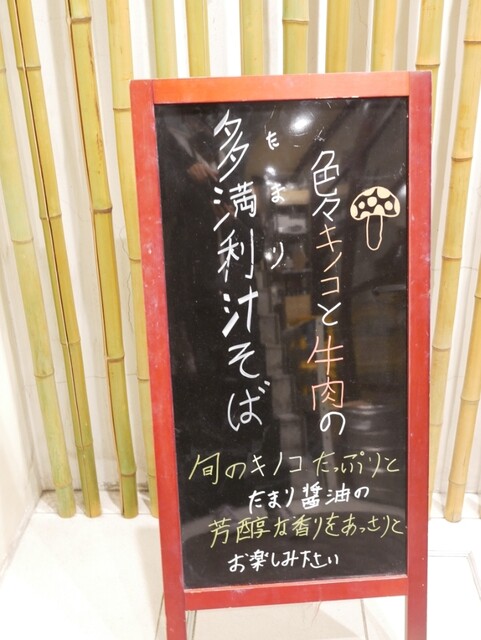 色々キノコと牛肉の
たまり
多満利汁そば
旬のキノコたっぷりと
たまり醤油の
芳醇な香りをあっさりと
お楽しみ下さい